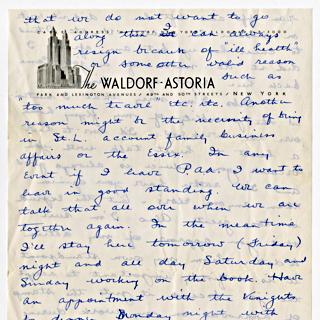 that we do not want to go
along then I can always
resign because of "ill health"
or some other val's reason
such as
The WALDORF-ASTORIA
PARK AND LEXINGTON AVENUES / 49TH AND 50TH STREETS / NEW YORK
"too much travel" etc. etc. Another
reason might be the necessity of being
in St.L. account family business
affairs or the Essex. In any
Event if I leave P.a.a. I want to
leave in good standing. We can
talk that all over when we are
together again. In the meantime
I'll stay here tomorrow (Friday)
night and all day Saturday and
Sunday working on the book. Have
an appointment with the Knights
Monday night with